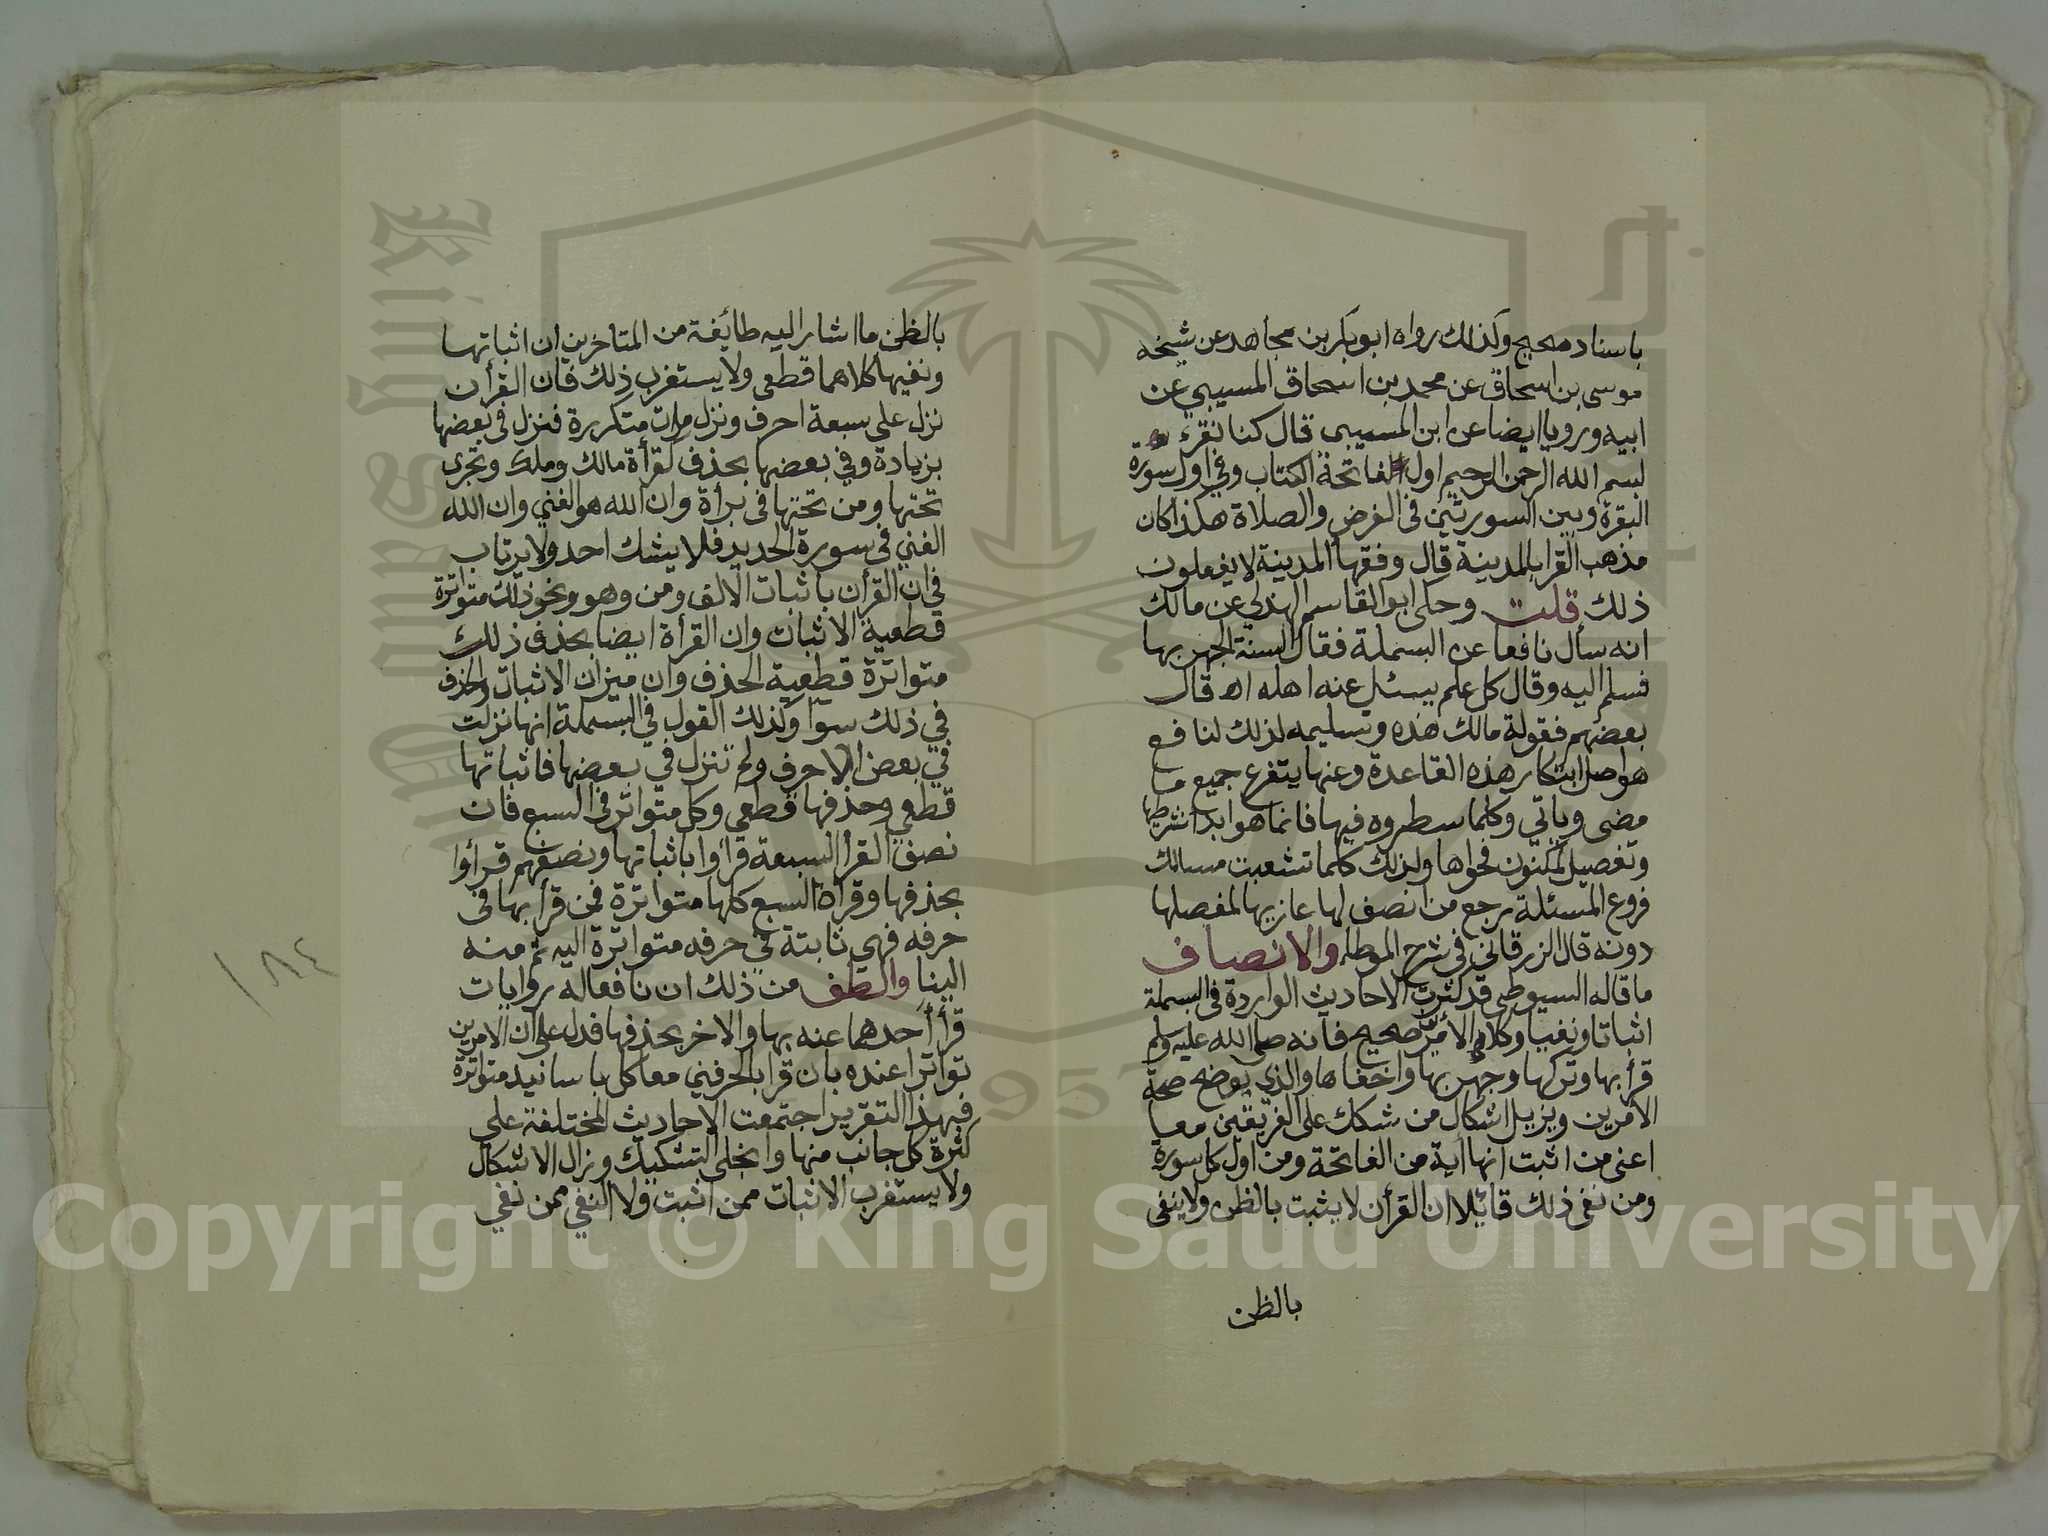 باسناد صحيح وكذلك رواه ابو بكر بن مجاهد عن شيخه
موسى بن اسحاق عن محمد بن اسحاق المسيبي عن
ابيه وروينا ايضا عن ابن المسيبى قال كنا نقرء
بسم الله الرحمن الرحيم اول الفاتحة الكتاب وفي اول سورة
البقرة وبين السورتين فى الفرض والصلاة هكذا كان
مذهب القرا بالمدينة قال وفقهأ المدينة لا يفعلون
ذلك قلت وحكى ابو القاسم الهذلي عن مالك
انه سأل نافعا عن البسملة فقال السنة الجهر بها
فسلم اليه وقال كل علم يسئل عنه اهله اه قال
بعضهم فقولة مالك هذه وتسليمه لذلك لنافع
هو اصل ابتكار هذه القاعدة وعنها يتفرع جميع ما
مضى وياتي وكلما سطروه فيها فانما هو ابدا
وتفصيل لمكنون فحواها ولذلك كلما تشعبت مسالك
فروع المسئلة رجع من انصف لها
دونه قال الزرقانى فى شرح الموطا والانصاف
ما قاله السيوطى قد كثرت الاحاديث الواردة فى البسملة
اثباتا ونفيا وكلا الأمرين صحيح فانه صلى الله عليه وسلم
قرأ بها وتركها وجهر بها واخفاها والذي يوضح صحة
الامرين ويزيل اشكال من شكك على الفريقين معا
اعنى من اثبت انها اية من الفاتحة ومن اول كل سورة
ومن نفى ذلك قائلا ان القرأن لا يثبت بالظن ولا ينفى
بالظن
بالظن ما اشار اليه طائفة من المتاخرين ان اثباتها
ونفيها كلاهما قطعى ولا يستغرب ذلك فان القرأن
نزل على سبعة احرف ونزل مرات متكررة فنزل فى بعضها
بزيادة وفي بعضها بحذف كقرأة مالك وملك وتجرى
تحتها ومن تحتها فى برأة وان الله هو الغني وان الله
الغني فى سورة الحديد فلا يشك احد ولا يرتاب
في ان القرأن باثبات الالف ومن وهو ونحو ذلك متواترة
قطعية الاثبات وان القرأة ايضا بحذف ذلك
متواترة قطعية الحذف وان ميزان الاثبات والحذف
في ذلك سوآ وكذلك القول في البسملة انها نزلت
في بعض الاحرف ولم تنزل في بعضها فاثباتها
قطعي وحذفها قطعي وكل متواتر فى السبع فان
نصف القرأ السبعة قرأوا باثباتها ونصفهم قرأوا
بحذفها وقرأة السبع كلها متواترة فمن قرأ بها فى
حرفه فهي ثابتة في حرفه متواترة اليه ثم منه
الينا والطف من ذلك ان نافعا له روايات
قرأ أحدهما عنه بها والاخر بحذفها فدل على ان الامرين
تواترا عنده بان قرا بالحرفين معا كل باسانيد متواترة
فبهذا التقرير اجتمعت الاحاديث المختلفة على
كثرة كل جانب منها وانجلى التشكيك وزال الاشكال
ولا يستغرب الاثبات ممن اثبت ولا النفي ممن نفي
١٨٤
King Saud University
1957
Copyright © King Saud University